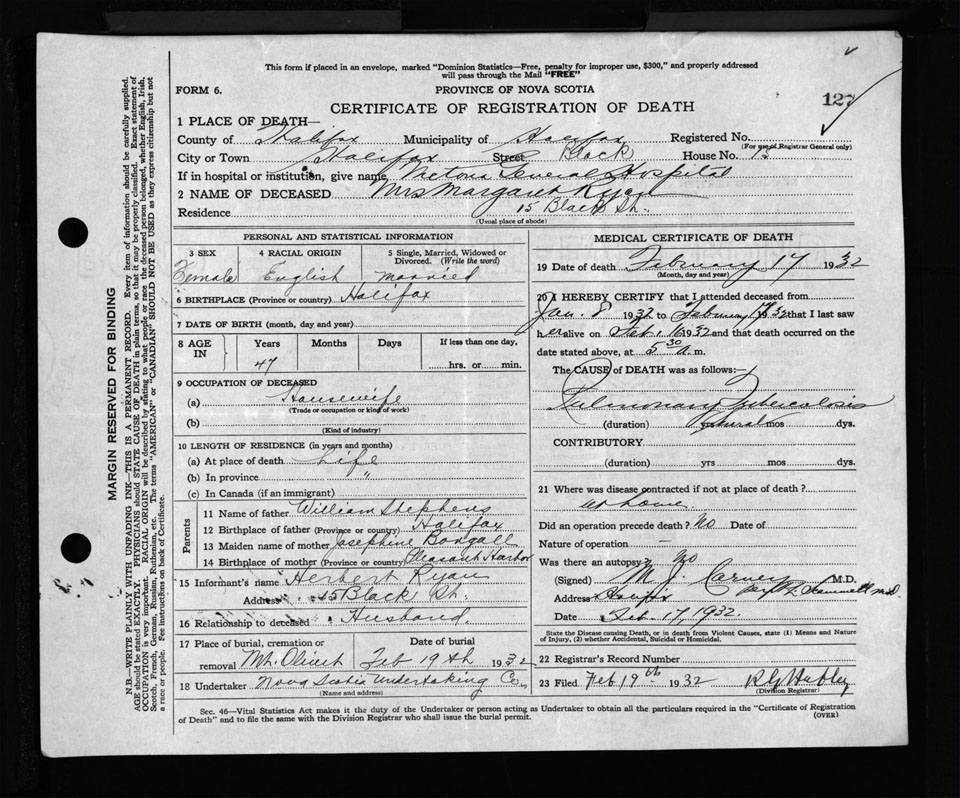 This form if placed in an envelope, marked "Dominion Statistics—Free, penalty for improper use, $300," and properly addressed
will pass through the Mail "FREE"
FORM 6.
PROVINCE OF NOVA SCOTIA
CERTIFICATE OF REGISTRATION OF DEATH
127
1 PLACE OF DEATH—
County of Halifax Municipality of Halifax Registered No.
(For use of Registrar General only)
City or Town Halifax Street Black House No. 15
If in hospital or institution, give name Victoria General Hospital
2 NAME OF DECEASED Mrs Margaret Ryan
Residence 15 Black St.
(Usual place of abode)
PERSONAL AND STATISTICAL INFORMATION
3 SEX 4 RACIAL ORIGIN 5 Single, Married, Widowed or Divorced. (Write the word)
Female English married
6 BIRTHPLACE (Province or country) Halifax
7 DATE OF BIRTH (month, day and year)
8 AGE IN Years Months Days If less than one day,
47 hrs. or min.
9 OCCUPATION OF DECEASED
(a) Housewife
(Trade or occupation or kind of work)
(b)
(Kind of industry)
10 LENGTH OF RESIDENCE (in years and months)
(a) At place of death Life
(b) In province "
(c) In Canada (if an immigrant)
Parents
11 Name of father William Stephens
12 Birthplace of father (Province or country) Halifax
13 Maiden name of mother Josephine
14 Birthplace of mother (Province or country) Pleasant Harbor
15 Informant's name Herbert Ryan
Address 15 Black St.
16 Relationship to deceased Husband
17 Place of burial, cremation or Date of burial
removal Mt. Olivet Feb 19th 1932
18 Undertaker Nova Scotia Undertaking Co.
(Name and address)
MEDICAL CERTIFICATE OF DEATH
19 Date of death February 17 1932
(Month, day and year)
20 I HEREBY CERTIFY that I attended deceased from
Jan. 8 1932 to February 17 1932 that I last saw
her alive on Feb. 16 1932 and that death occurred on the
date stated above, at 5 30 a. m.
The CAUSE of DEATH was as follows:—
Pulmonary Tuberculosis
(duration) yrs several mos dys.
CONTRIBUTORY
(duration) yrs mos dys.
21 Where was disease contracted if not at place of death?
at home.
Did an operation precede death? No Date of
Nature of operation —
Was there an autopsy? No
(Signed) M. J. Carney M.D.
Address Halifax
Date Feb. 17, 1932.
State the Disease causing Death, or in death from Violent Causes, state (1) Means and Nature
of Injury, (2) whether Accidental, Suicidal or Homicidal.
22 Registrar's Record Number
23 Filed Feb 19th 1932
(Division Registrar)
Sec. 46—Vital Statistics Act makes it the duty of the Undertaker or person acting as Undertaker to obtain all the particulars required in the "Certificate of Registration
of Death" and to file the same with the Division Registrar who shall issue the burial permit.
(OVER)
MARGIN RESERVED FOR BINDING
N.B.—WRITE PLAINLY WITH UNFADING INK—THIS IS A PERMANENT RECORD. Every item of information should be carefully supplied.
AGE should be stated EXACTLY. PHYSICIANS should STATE CAUSE OF DEATH in plain terms, so that it may be properly classified. Exact statement of
OCCUPATION is very important. RACIAL ORIGIN will be described by stating to what people or race the deceased person belonged, whether English, Irish,
Scotch, French, German, Russian, Ruthenian, etc. The terms "AMERICAN" or "CANADIAN" SHOULD NOT BE USED as they express citizenship but not
a race or people. See instructions on back of Certificate.